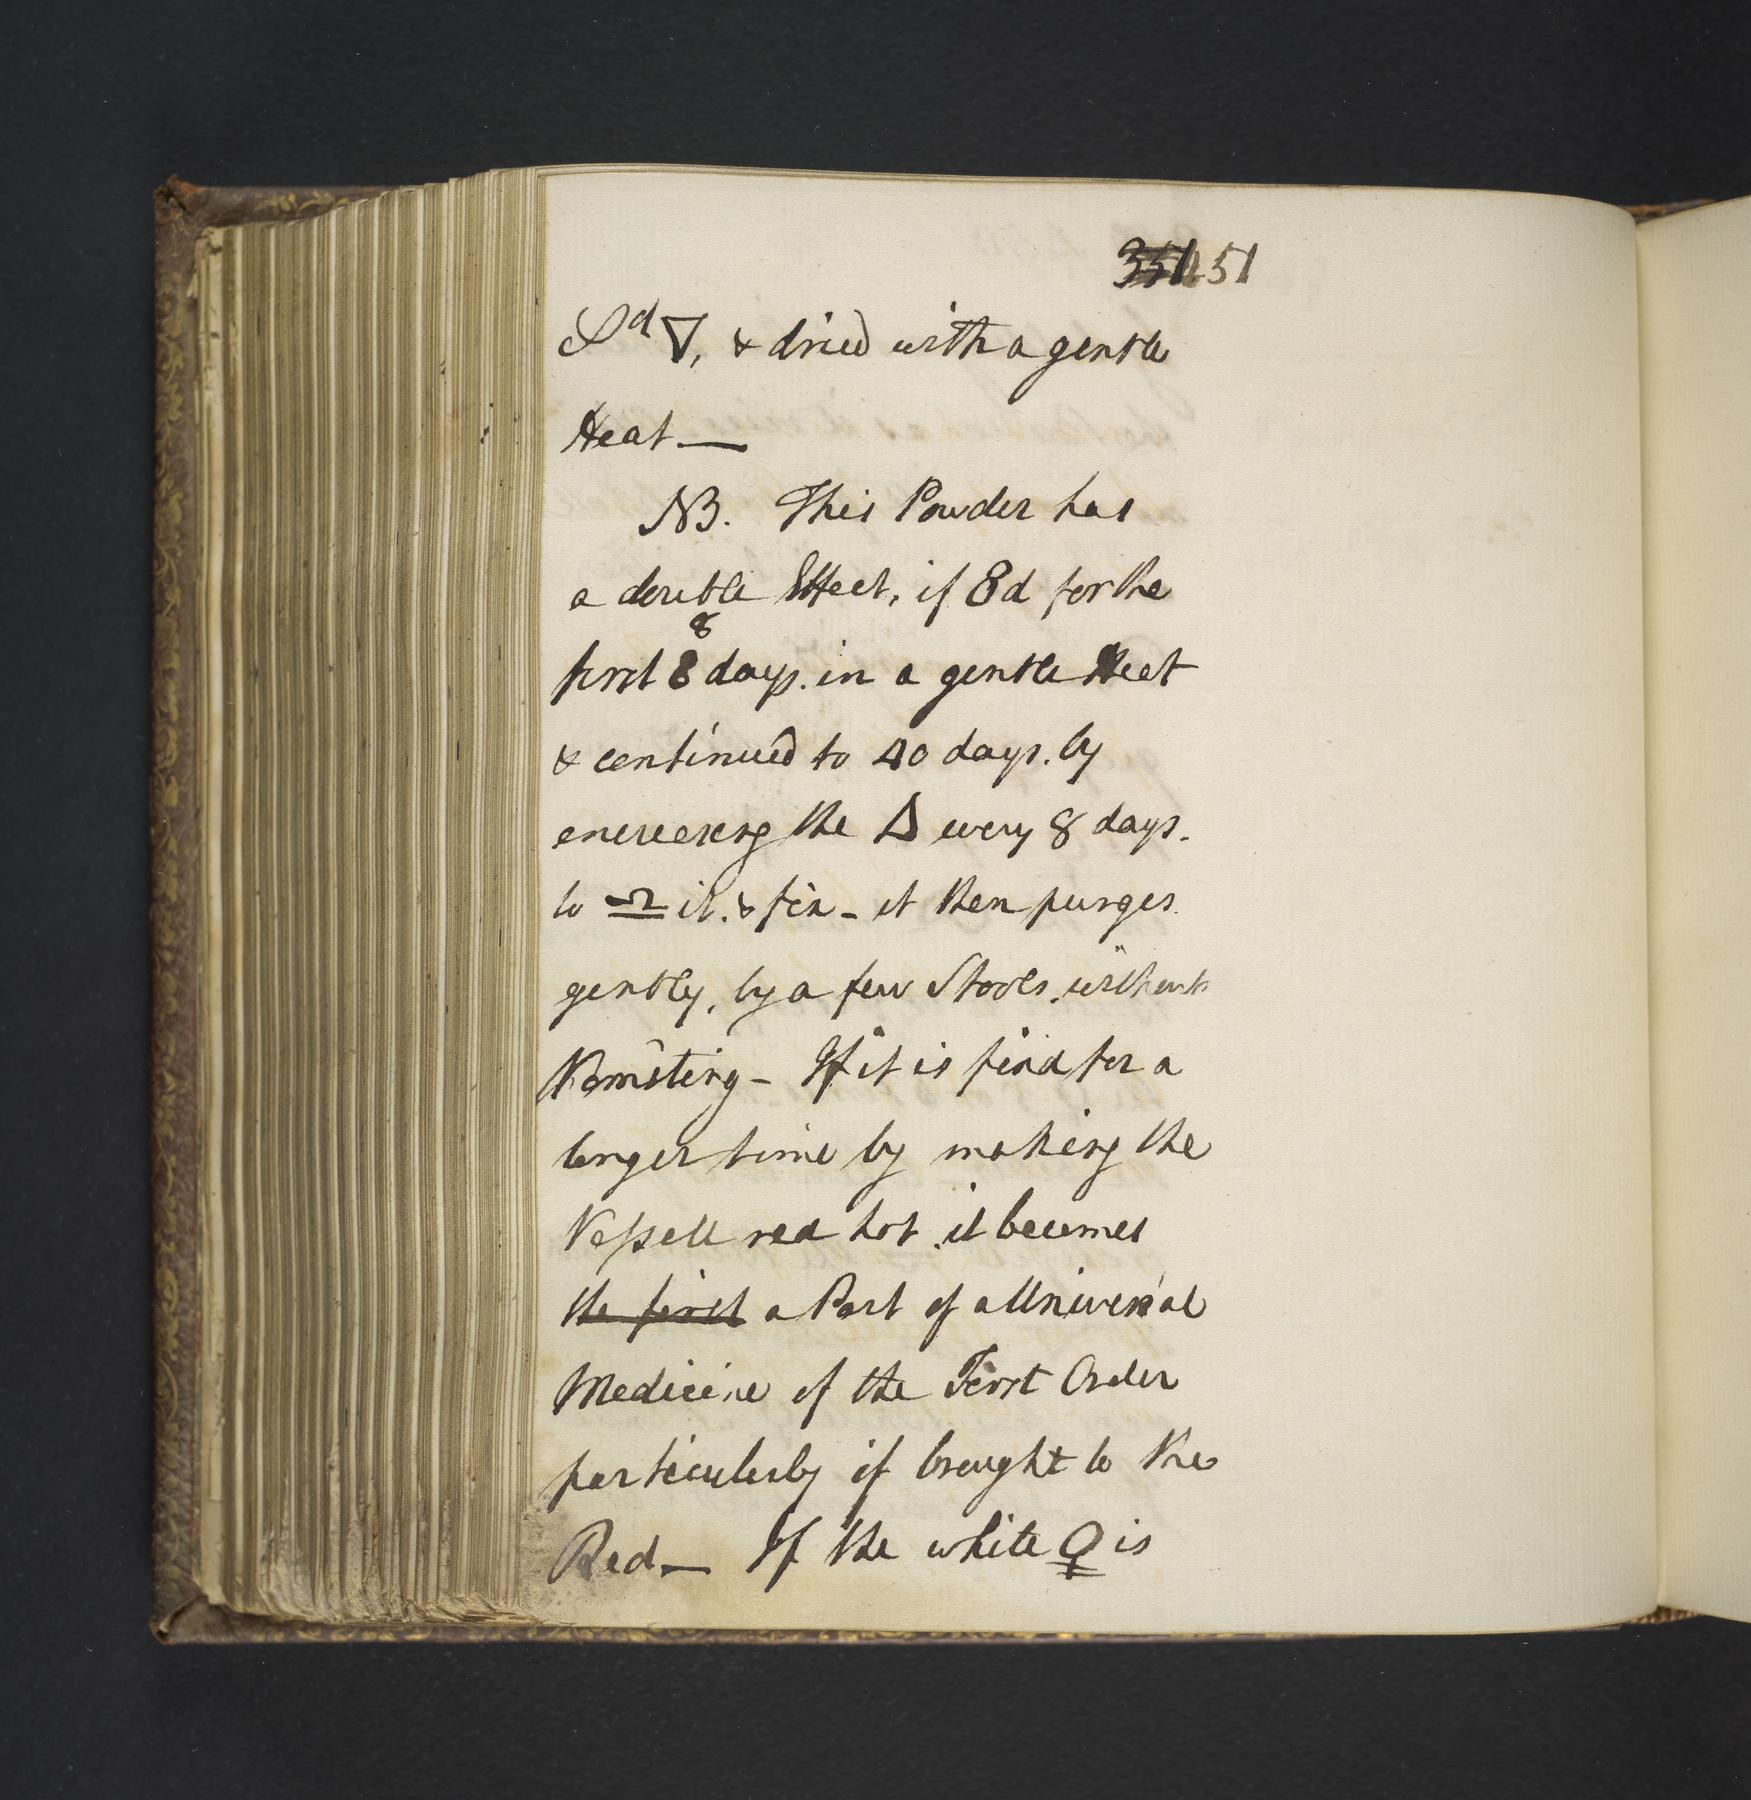 351 51
d ▽, & dried with a gentle
Heat —
NB. This Powder has
a double Effect, if 8d for the
8
first 8 days. in a gentle Heat
& continued to 40 days. by
encreasing the △ every 8 days.
to ♎ it. & fix - it then purges
gently, by a few Stools. without
Vomiting - If it is fixd for a
longer time by making the
Vessell red hot it becomes
the first a Part of a Universal
Medicine of the First Order
particularly if brought to the
Red — If the white ♀ is